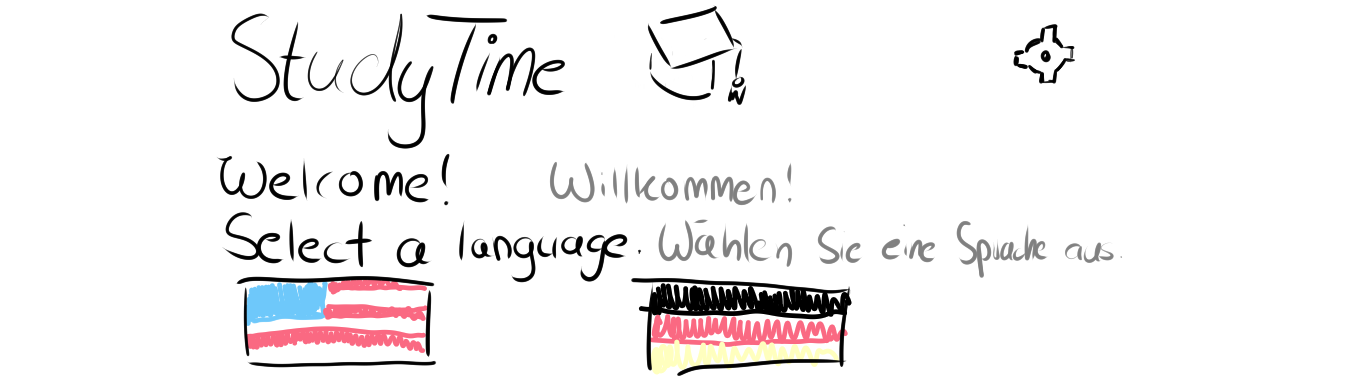 StudyTime
Welcome! Willkommen!
Select a language. Wählen Sie eine Sprache aus.